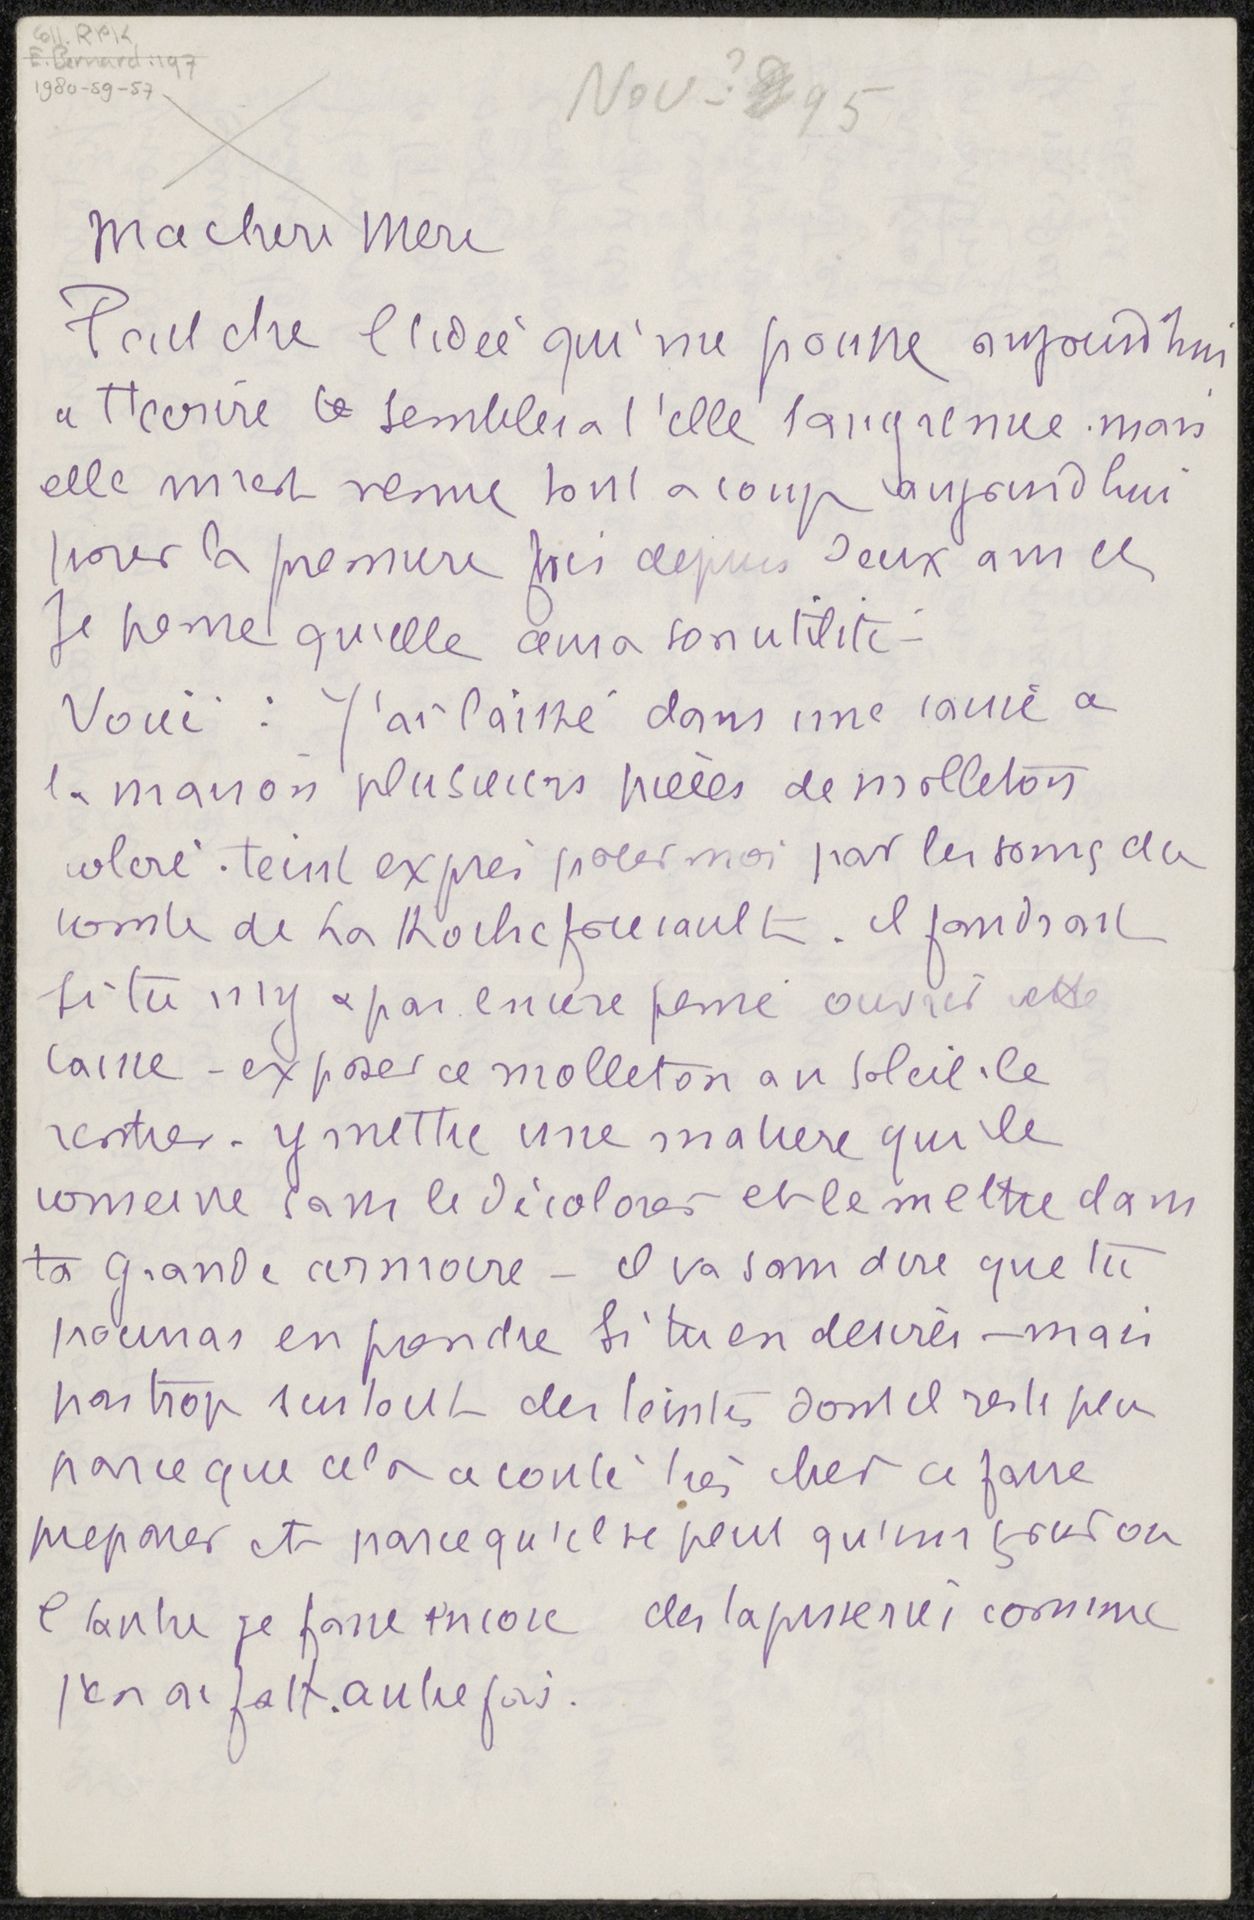 Coll. RPK
E. Bernard: 197
1980-59-57
Nov - ? 95
Ma chere Mere
Peut etre l'idee qui me pousse aujourd'hui
a t'ecrire te semblera t'elle sangrenue. mais
elle m'est venue tout a coup aujourd'hui
pour la premiere fois depuis deux ans et
Je pense qu'elle aura son utilité -
Voici : J'ai laissé dans une caisse a
la maison plusieurs pièces de molleton
coloré. teint exprès pour moi par les soins du
comte de La Rochefoucault. il faudrait
si tu n'y a pas encore pensé ouvrir cette
caisse - exposer ce molleton au soleil. le
rentrer. y mettre une matiere qui le
conserve sans le décolorer et le mettre dans
ta grande armoire - il va sans dire que tu
pourras en prendre si tu en desires - mais
pas trop surtout des teintes dont il reste peu
parce que cela a couté très cher a faire
preparer et parcequ'il se peut qu'un jour ou
l'autre je fasse encore des tapisseries comme
j'en ai fait. autrefois.